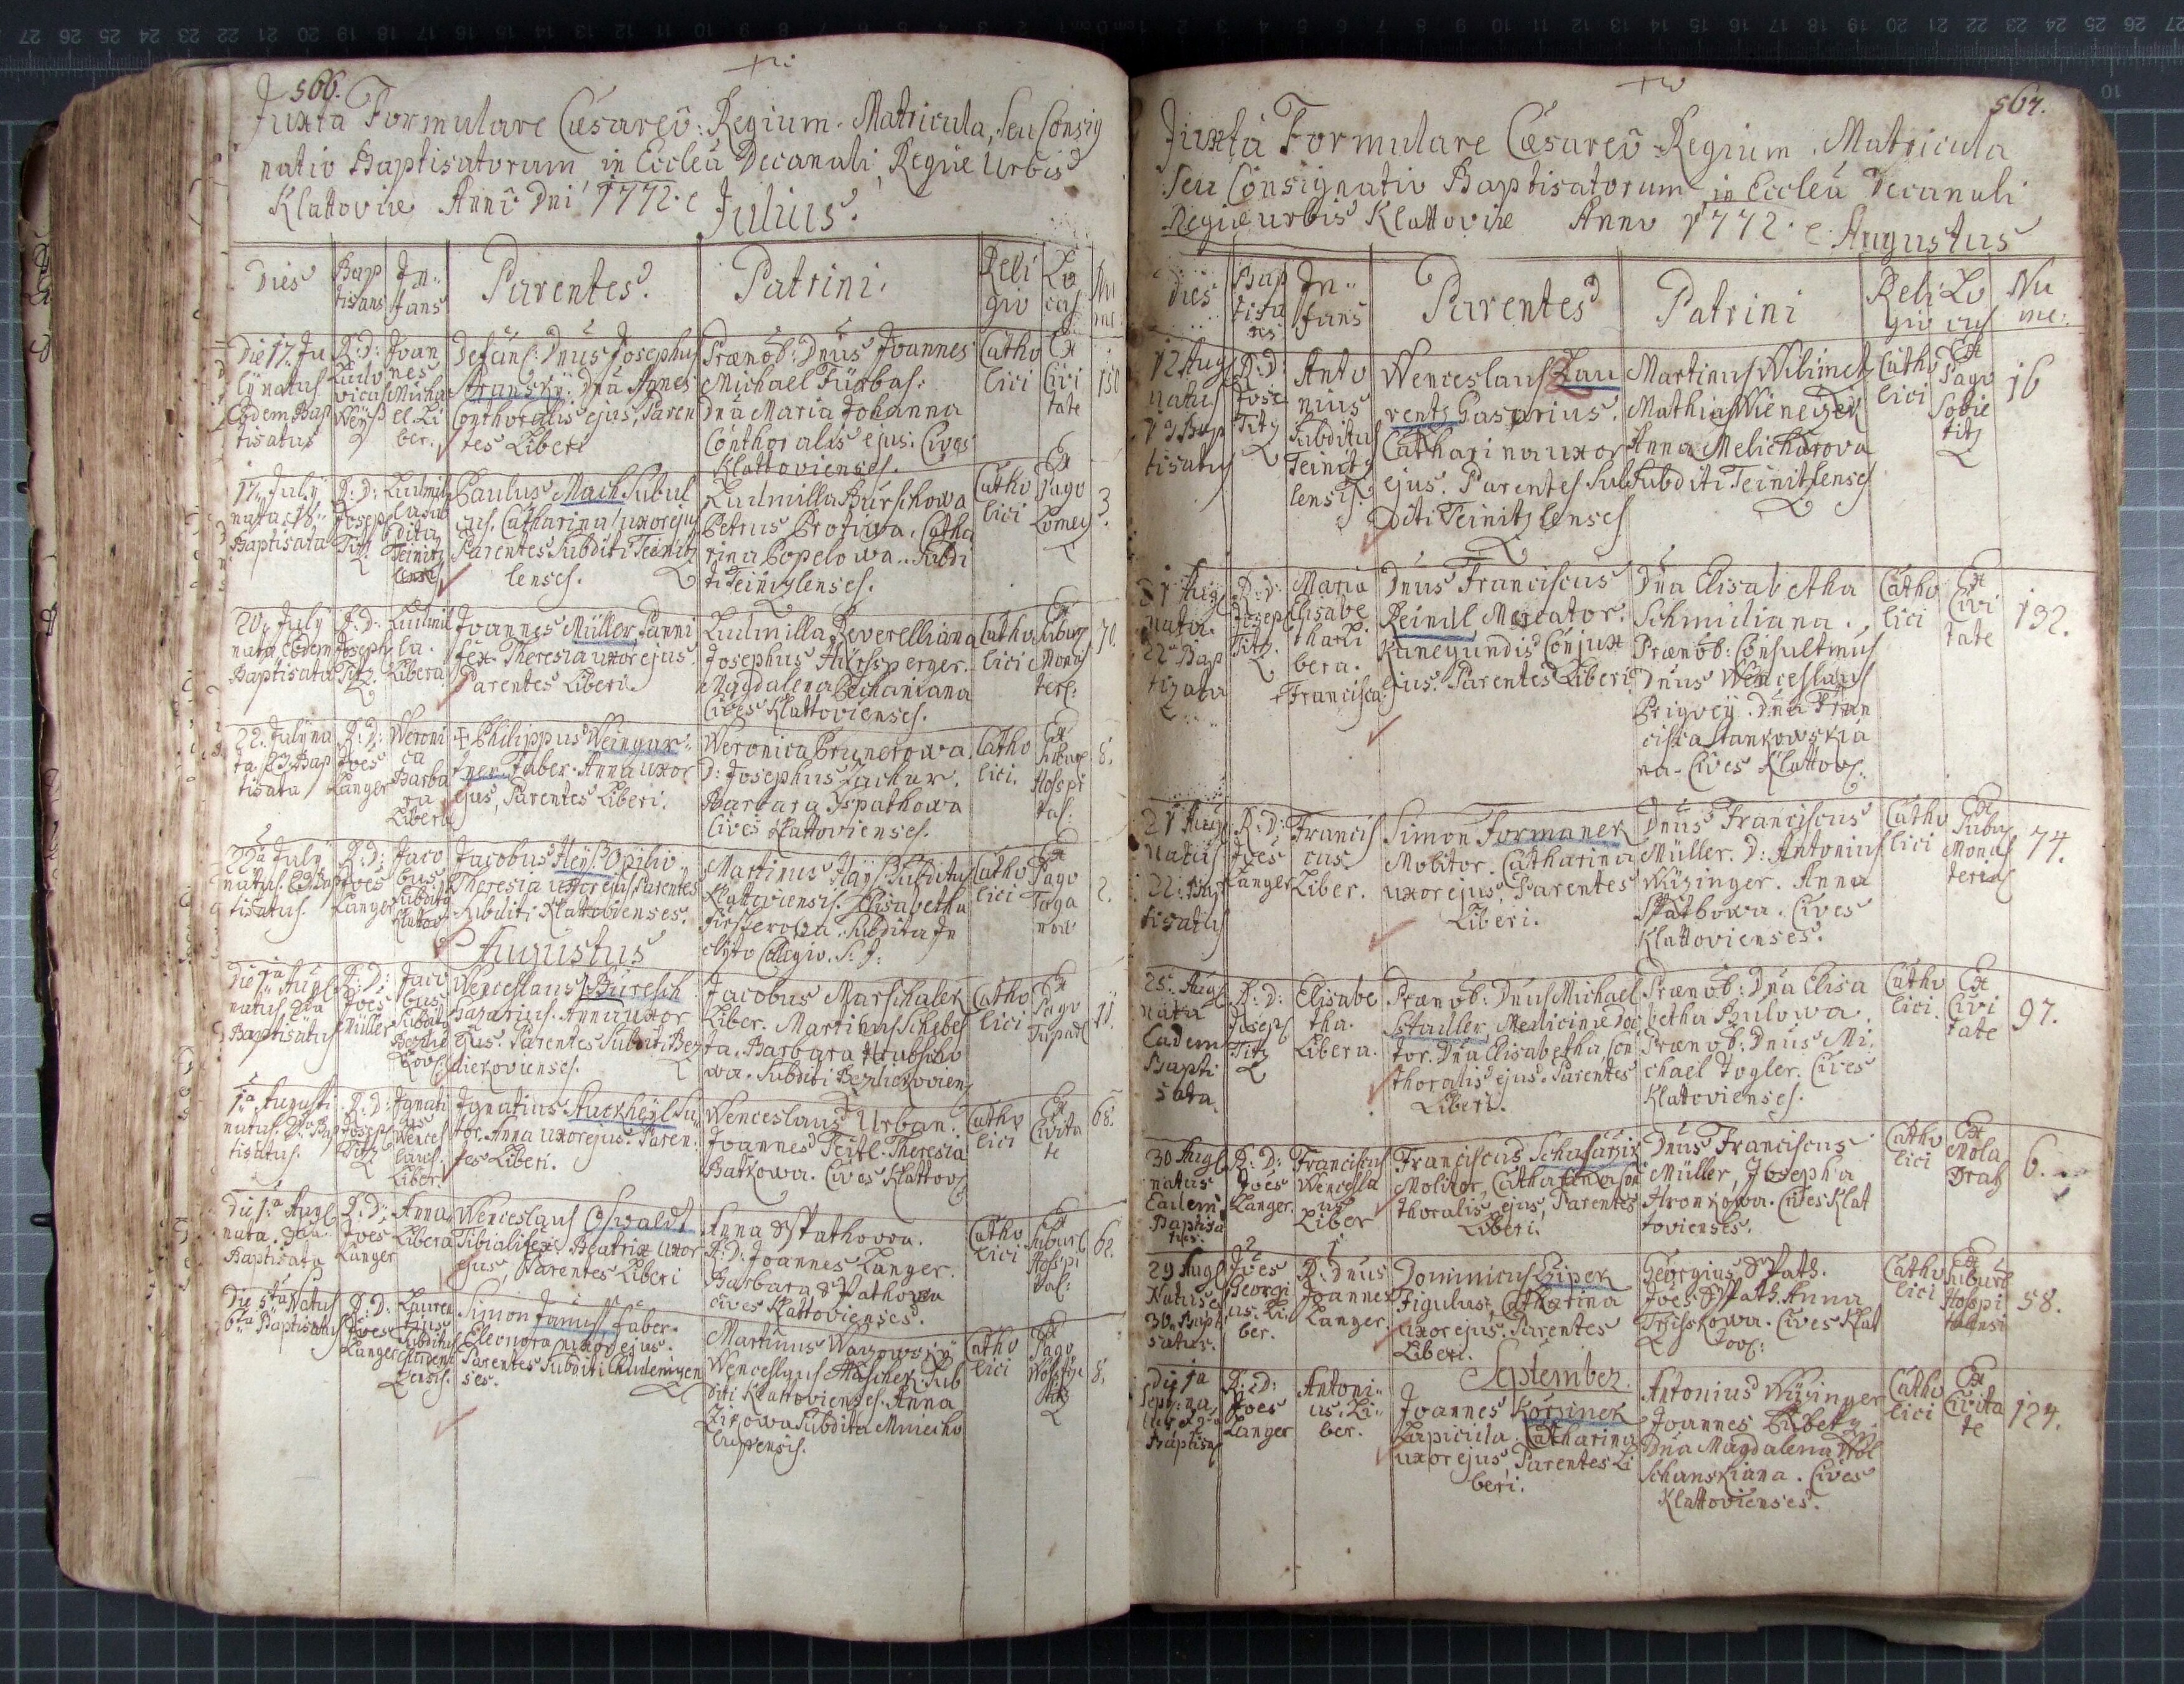 566.
Juxta Formulare Cæsareô: Regium. Matricula, Seu Consig
natio Baptisatorum in Ecclea Decanali, Regiæ Urbis
Klattoviæ, Anni Dni 1772. e Julius.
Dies
Bap
tisans
In:
fans
Parentes.
Patrini.
Reli
gio
Lo
cus
Nu
me:
Die 17. Ju
lÿ natus
Eodem Bap
tisatus
R: D:
Ludo
vicus
Joan
nes
Micha
el. Li
ber.
Defunc: Dnus Josephus
Dna Agnes
Conthoralis ejus, Paren
tes Liberi
Prænob: Dnus Joannes
Michael Fürbas:
Dna Maria Johanna
Conthoralis ejus: Cives
Klattovienses.
Catho
lici
Ex
Civi
tate
17. Julÿ
nata 18.
Baptisata
R: D:
Joseph
Titz
Ludmil
la Su
bdita
Teinitz
lensis
Paulus Mach Subul
cus. Catharina uxor ejus
Parentes Subditi Teinitz
lenses.
Ludmilla Burschowa
Petrus Protiwa, Catha
rina Popelowa. Subdi
ti Teinitzlenses.
Catho
lici
Ex
Pago
3.
20. Julÿ
nata Eodem
Baptisata
R: D:
Joseph
Titz.
Ludmil
la.
Libera
Joannes Müller Panni
fex. Theresia uxor ejus.
Parentes Liberi.
Ludmilla Reverelliana
Josephus Hirssperger.
Magdalena Pechaniana
Cives Klattovienses.
Catho
lici
Ex
Suburb
Monas
ter:
70.
22. Julÿ na
ta. 23. Bap
tisata
R: D:
Joes
Langer
Weroni
ca
Barba
ra
Libera
+ Philippus Weingar:
tner Faber. Anna uxor
ejus, Parentes Liberi.
Weronica Brunerowa.
D: Josephus Zachar.
Barbara Spathowa
Cives Klattovienses.
Catho
lici.
Ex
Subur
Hospi
tal:
8.
22a July
natus. 23 Bap
tisatus.
R: D:
Joes
Langer
Jaco
bus
Subdity
Klattov
Jacobus Heÿs Opilio
Theresia uxor ejus, Parentes
Subditi Klattovienses.
Martinus Haÿs Subditus
Klattoviensis. Elisabetha
Subdita In
clÿto Collegio. S: J:
Catho
lici
Ex
Pago
2.
Augustus
Die 1a Aug
natus 2da
Baptisatus
R: D:
Joes
Müller
Jaco
bus
Subdity
Wenceslaus Buresch
Anna uxor
ejus. Parentes Subditi Bez
diekovienses.
Jacobus Marschalek
Liber. Martinus Schebes
ta. Barbara Hrubscho
wa. Subditi Bezdiekovien
Catho
lici
Ex
Pago
11.
1a Augusti
natus. 2da Bap
tisatus.
R: D:
Joseph
Titz
Ignati
us
Wences
laus.
Liber.
Ignatius Stuckheÿl Su
tor. Anna uxor ejus. Paren:
tes Liberi.
Wenceslaus Urban.
Joannes Teitl. Theresia
Batkowa. Cives Klattov
Catho
lici
Ex
Civita
te
68.
Die 1a Aug
nata. 2da
Baptisata
R: D:
Joes
Langer
Anna
Libera
Wenceslaus Oswaldt
Tibialifex, Beatrix uxor
ejus, Parentes Liberi
Anna Spathova.
R: D: Joannes Langer.
Barbara Spathowa
Cives Klattovienses.
Catho
lici
Ex
Suburb
Hospi
tal:
62.
Die 5ta Natus
6ta Baptisatus
R: D:
Joes
Langer
Lauren
tius
Subditus
Simon Janus faber.
Eleonora uxor ejus.
Parentes Subditi Chudeniцen
ses.
Martinus
Wenceslaus Maschek Sub
diti Klattovienses. Anna
Zikowa Subdita Mniecho
lupensis.
Catho
lici
Ex
Pago
8.
567.
Juxta Formulare Cæsareô Regium. Matricula
Seu Consignatio Baptisatorum in Ecclea Decanali
Regiæ urbis Klattoviæ Anno 1772. e Augustus
Dies
Bap
tisa
ns
In:
fans
Parentes
Patrini
Reli
gio
Lo
cus
Nu
me:
12 Aug
natus
13 Bap
tisatus
R: D:
Jose
Titz
Anto
nius
Subditus
Teinitz
lensis.
Wenceslaus Lau
rentz Casarius.
Catharina uxor
ejus. Parentes Sub
diti Teinitzlenses
Martinus Wilimek
Mathias
Anna Melicharova
Subditi Teinitzlenses
Catho
lici
Ex
Pago
Sobie
titz
16
21 Aug
nata.
22 Bap
tizata
R: D:
Joseph
Titz.
Maria
Elisabe
tha Li
bera.
+ Francisca
Dnus Franciscus
Reindl Mercator.
Kunegundis Conjux
ejus. Parentes Liberi
Dna Elisabetha
Schmidiana.
Prænob: Consultmus
Dnus Wenceslaus
Prigveÿ. Dna Fran
cisca Stankowskia
na. Cives Klattov:
Catho
lici
Ex
Civi
tate
132.
21 Aug
natus
22. Bap
tisatus
R: D:
Joes
Langer
Francis
cus
Liber.
Simon Formanek
Molitor. Catharina
uxor ejus, Parentes
Liberi.
Dnus Franciscus
Müller. D: Antonius
Wisinger. Anna
Spathowa. Cives
Klattovienses.
Catho
lici
Ex
Subu
Monas
terial
74.
25. Aug
nata
Eadem
Bapti
sata.
R: D:
Joseph
Titz
Elisabe
tha.
Libera.
Prænob: Dnus Michael
Stadler, Medicinæ Doc
tor. Dna Elisabetha Con
thoralis ejus. Parentes
Liberi.
Prænob: Dna Elisa
betha Bulowa.
Prænob: Dnus Mi:
chael Togler. Cives
Klattovienses.
Catho
lici.
Ex
Civi
tate
97.
30 Aug
natus
Eadem
Baptisa
tus.
R: D:
Joes
Langer.
Franciscus
Wencesla
us
Liber
Franciscus Schafarzik
Molitor, Catharina Con
thoralis ejus, Parentes
Liberi.
Dnus Franciscus
Müller, Josepha
Hronkowa. Cives Klat
tovienses.
Catho
lici
Ex
Mola
Draz
6.
29 Aug
Natus
30. Bapti
satus.
Joes
Georgi
us. Li
ber.
R: Dnus
Joannes
Langer.
Dominicus Zipek
Figulus, Catharina
uxor ejus. Parentes
Liberi.
Georgius Spath.
Joes Spath. Anna
Trisskowa. Cives Klat
tov:
Catho
lici
Ex
Suburb
Hospi
talensi
58.
September.
Die 1a
Sept: na
tus 2da
Baptisa
R: D:
Joes
Langer
Antoni:
us. Li:
ber.
Joannes Korzinek
Lapicida. Catharina
uxor ejus, Parentes Li
beri.
Antonius Wisinger
Joannes
Dna Magdalena Wol
schanskiana. Cives
Klattovienses.
Catho
lici
Ex
Civita
te
124.